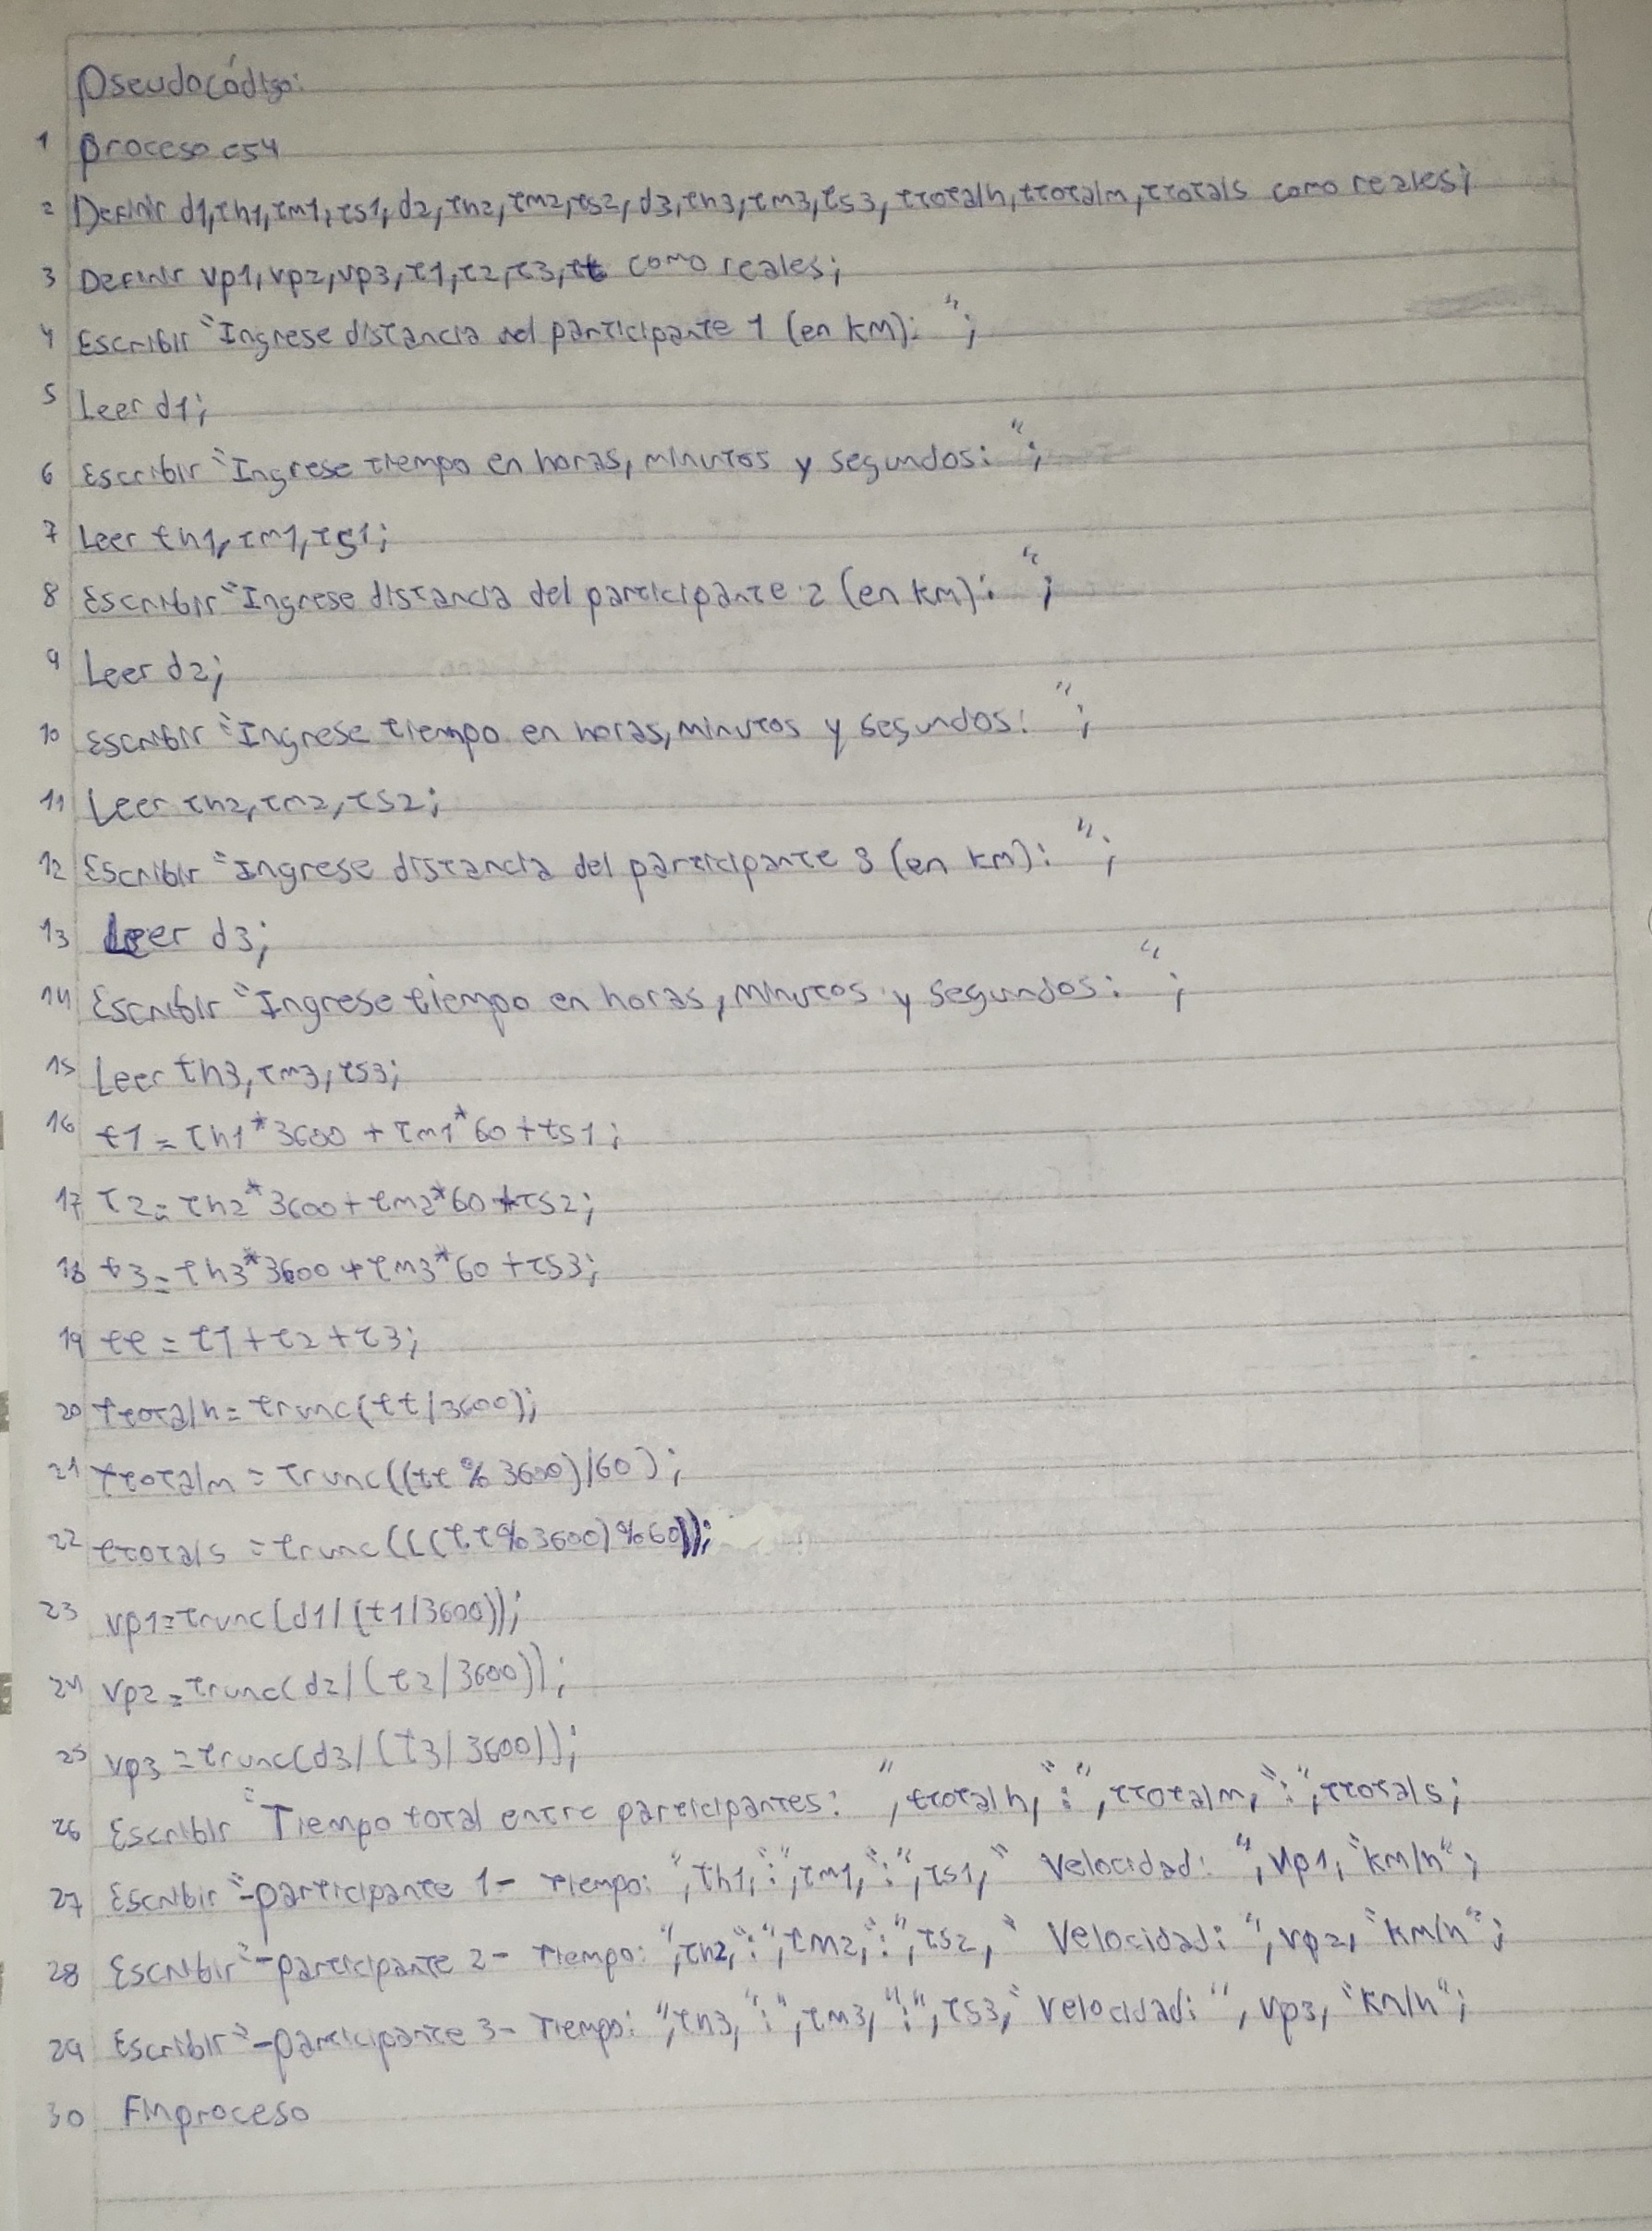 Pseudocódigo:
1 Proceso es4
2 Definir d1,th1,tm1,ts1,d2,th2,tm2,ts2,d3,th3,tm3,ts3,ttotalh,ttotalm,ttotals como reales;
3 Definir vp1,vp2,vp3,t1,t2,t3,tt como reales;
4 Escribir "Ingrese distancia del participante 1 (en KM): ";
5 Leer d1;
6 Escribir "Ingrese tiempo en horas, minutos y segundos: ";
7 Leer th1,tm1,ts1;
8 Escribir "Ingrese distancia del participante 2 (en KM): ";
9 Leer d2;
10 Escribir "Ingrese tiempo en horas, minutos y segundos: ";
11 Leer th2,tm2,ts2;
12 Escribir "Ingrese distancia del participante 3 (en KM): ";
13 Leer d3;
14 Escribir "Ingrese tiempo en horas, minutos y segundos: ";
15 Leer th3,tm3,ts3;
16 t1=th1*3600+tm1*60+ts1;
17 t2=th2*3600+tm2*60+ts2;
18 t3=th3*3600+tm3*60+ts3;
19 tt=t1+t2+t3;
20 ttotalh=trunc(tt/3600);
21 ttotalm=trunc((tt%3600)/60);
22 ttotals=trunc(((tt%3600)%60));
23 vp1=trunc(d1/(t1/3600));
24 vp2=trunc(d2/(t2/3600));
25 vp3=trunc(d3/(t3/3600));
26 Escribir "Tiempo total entre participantes: ",ttotalh,":",ttotalm,":",ttotals;
27 Escribir "-Participante 1- Tiempo: ",th1,":",tm1,":",ts1," Velocidad: ",vp1,"km/h";
28 Escribir "-Participante 2- Tiempo: ",th2,":",tm2,":",ts2," Velocidad: ",vp2,"km/h";
29 Escribir "-Participante 3- Tiempo: ",th3,":",tm3,":",ts3," Velocidad: ",vp3,"km/h";
30 Finproceso